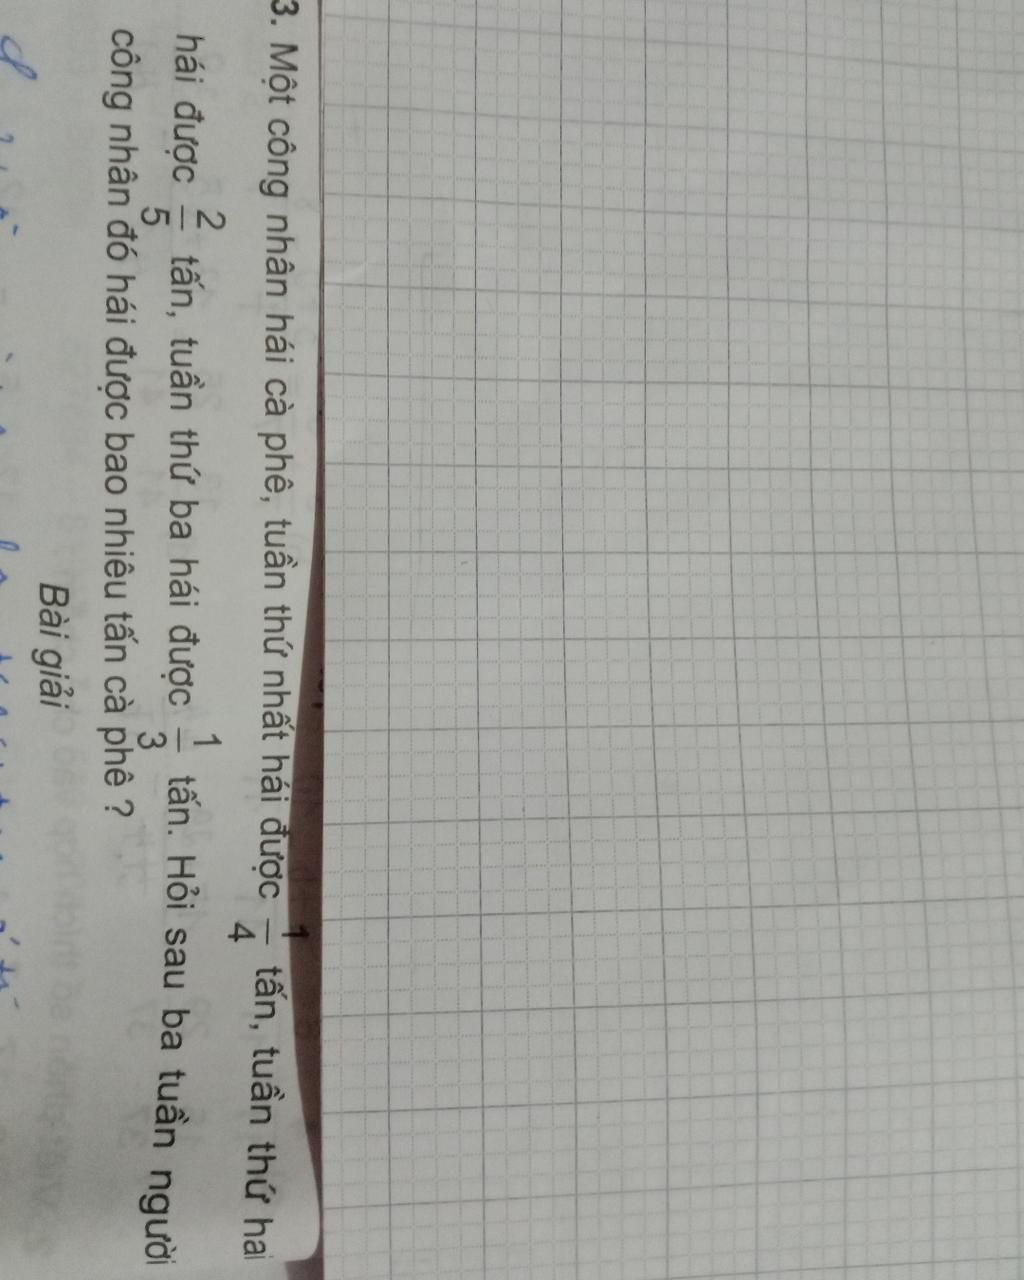 3. Một công nhân hái cà phê, tuần thứ nhất hái được 1/4 tấn, tuần thứ hai
hái được 2/5 tấn, tuần thứ ba hái được 1/3 tấn. Hỏi sau ba tuần người
công nhân đó hái được bao nhiêu tấn cà phê ?
Bài giải